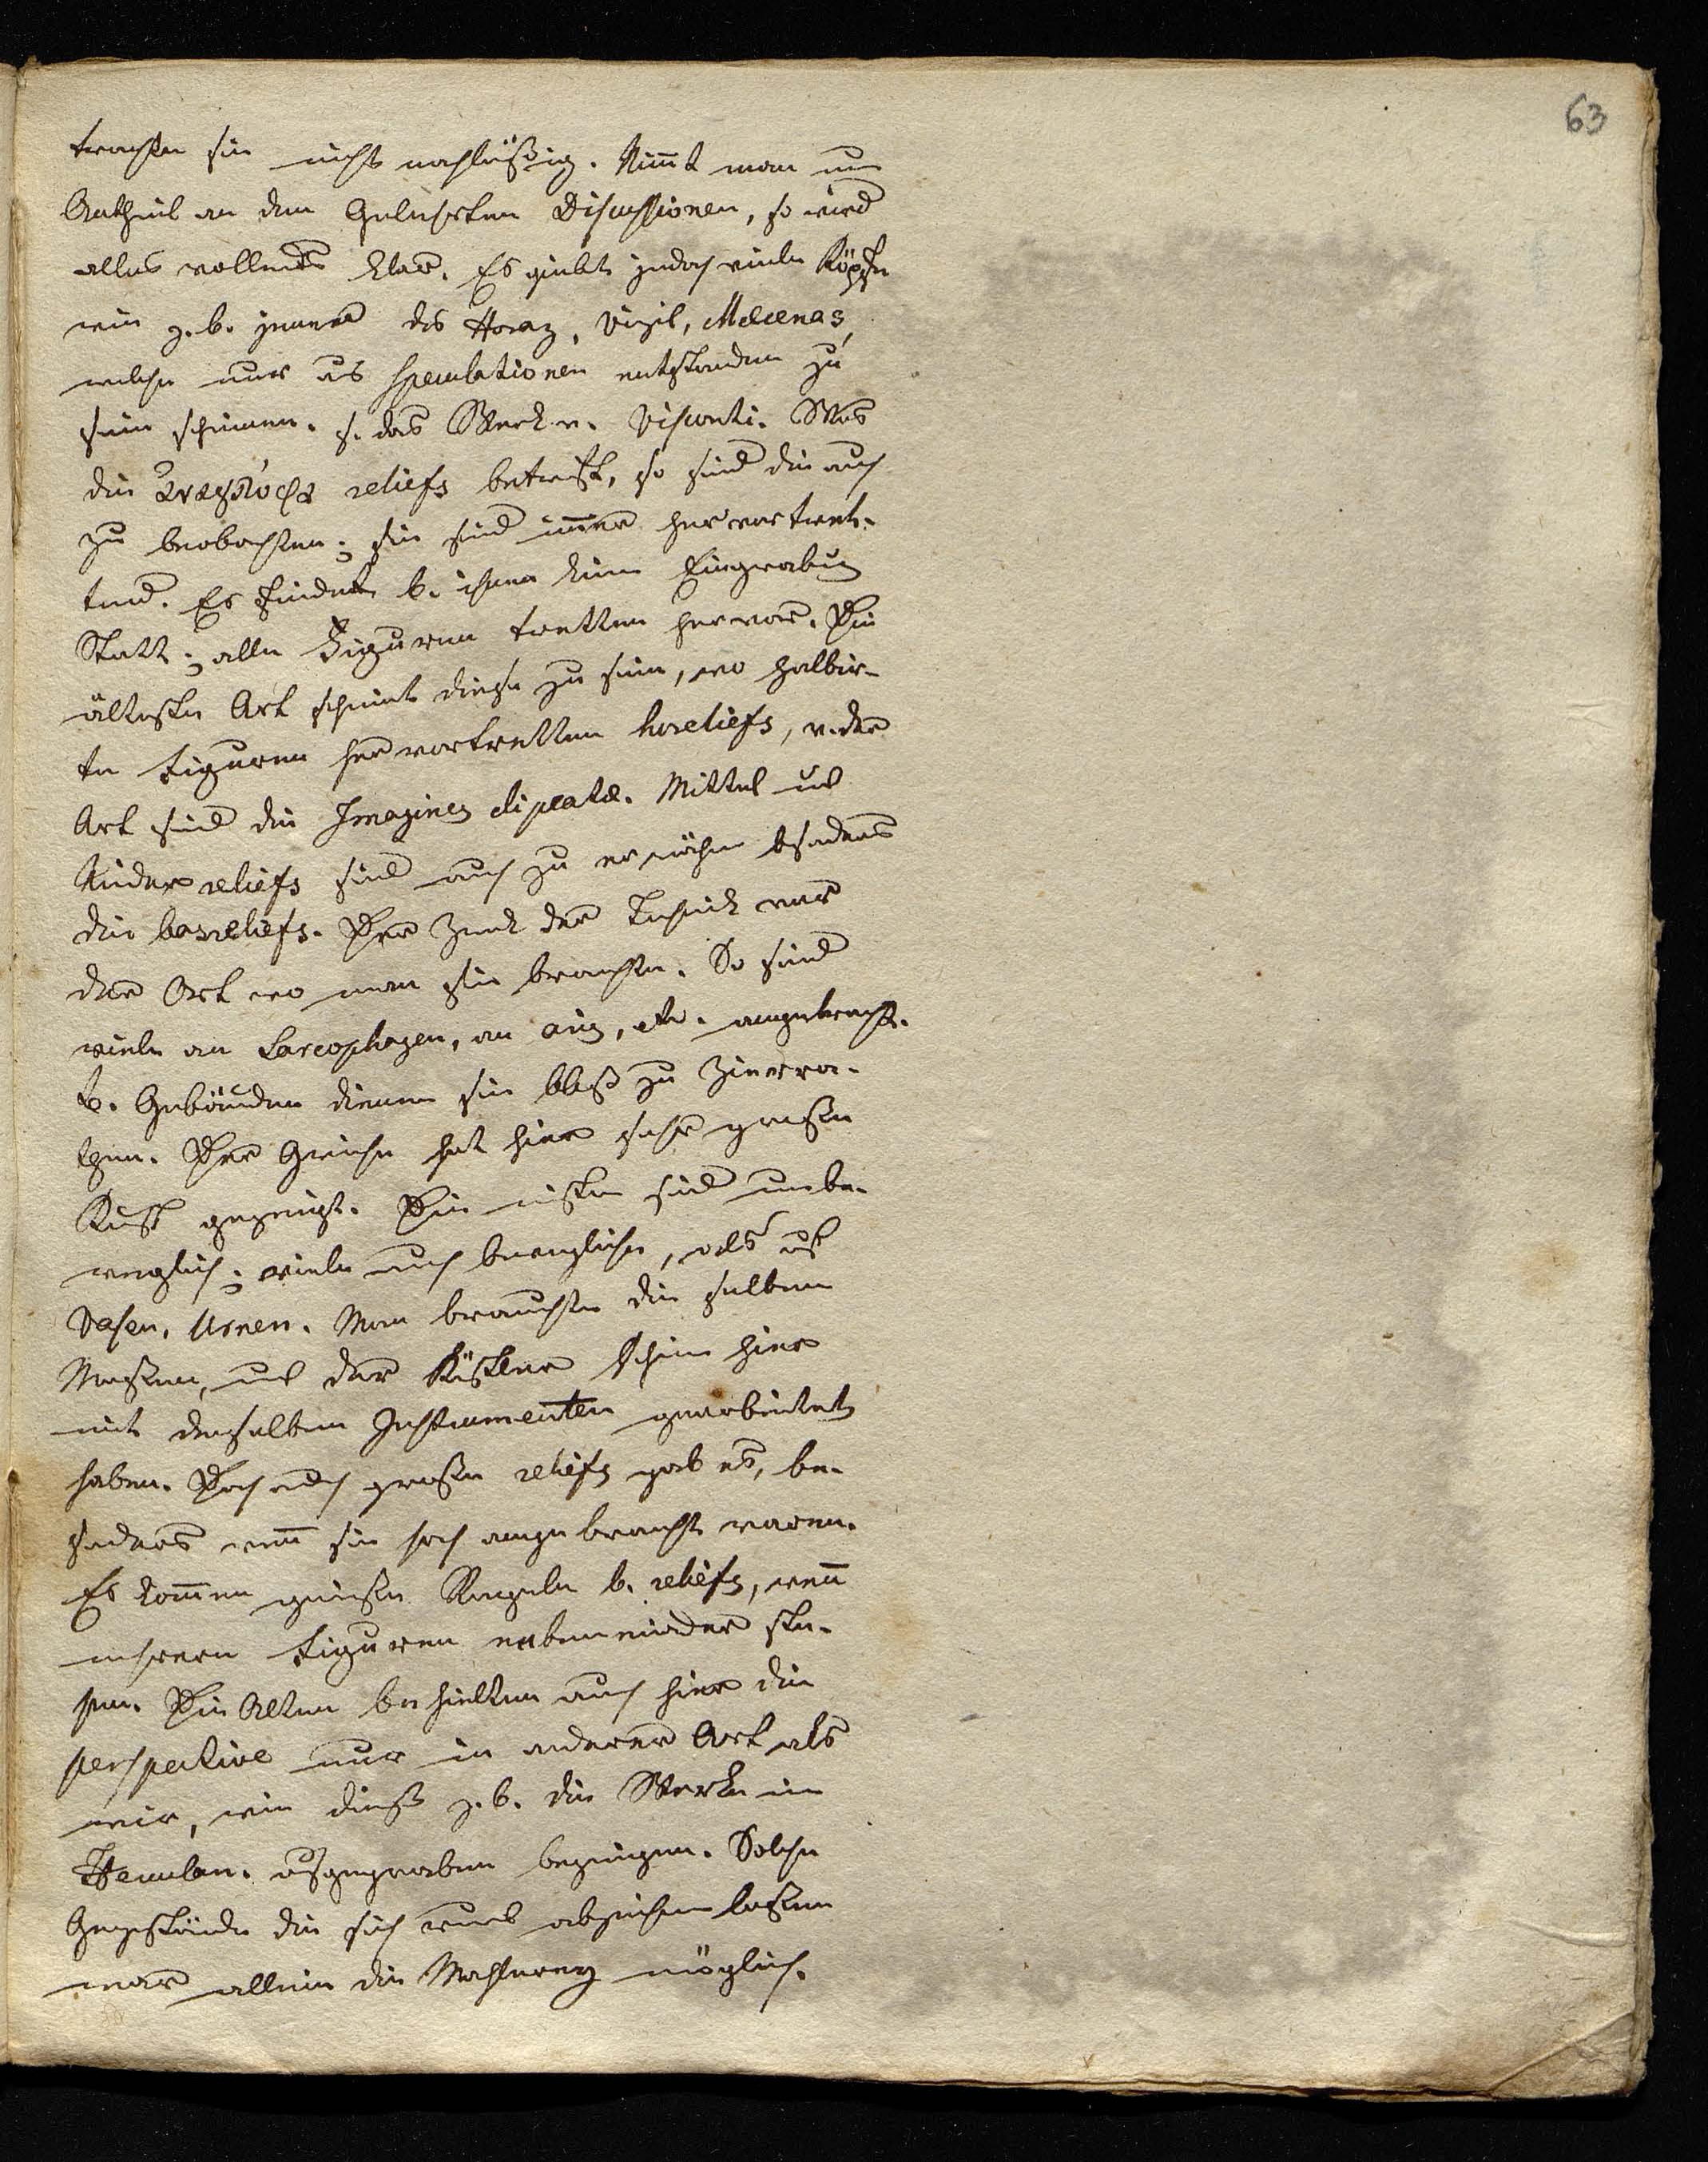 63
trachte sie nicht nachläßig. Nim̄t man nun
Antheil an den Gelehrten Discussionen, so wird
alles vollends klar. Es giebt jedoch viele Köpfe
wie z. b. jener des Horaz, Virgil, Mæcenas,
welche nur aus Speculationen entstanden zu
sein scheinen. s. das Werk v. Visconti. Was
die ἀνάγλυφα reliefs betrift, so sind die auch
zu beobachten; sie sind im̄er hervortret-
tend. Es findet b. ihnen keine Eingrabung
Statt; alle Figuren tretten hervor. Die
älteste Art scheint diese zu sein, wo halbir-
te Figuren hervortretten horeliefs, v. der
Art sind die Imagines clipeatæ. Mittel und
Nider reliefs sind auch zu erwähnen besonders
die basreliefs. Der Zweck der Technik war
der Ort wo man sie brauchte. So sind
viele an Sarcophagen, an etc. angebracht.
b. Gebäuden dienen sie bloß zu Zierra-
then. Der Grieche hat hier sehr große
Kunst gezeigt. Die meisten sind unbe-
weglich; viele auch bewegliche, als auf
Vasen, Urnen. Man brauchte die selben
Massen, und der Künstler schein hier
mit denselben Instrumenten gearbeitet
haben. Doch auch große reliefs gab es, be-
sonders wen̄ sie hoch angebracht waren.
Es kom̄en gewiße Regeln b. reliefs, wen̄
mehrere Figuren nebeneinander ste-
hen. Die Alten behielten auch hier die
perspective nur in anderer Art als
wir, wie dieß z. b. die Werke in
Herculan. ausgegraben bezeigen. Solche
Gegestände die sich rund abzeichnen laßen
war allein die Mahlerey möglich.